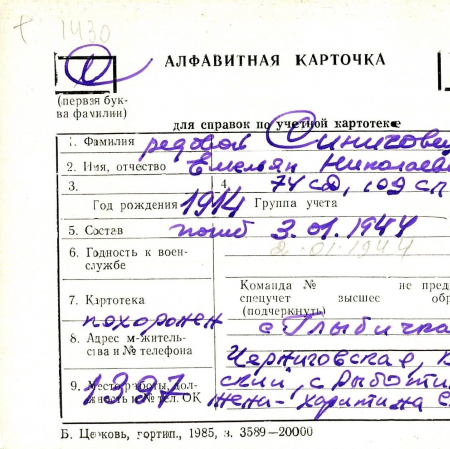 1430
С
АЛФАВИТНАЯ КАРТОЧКА
(первая бук-
ва фамилии)
для справок по учетной картотеке
1. Фамилия рядовой Синиговец
2. Имя, отчество Емельян Николаеви
3. 4. 74 сд, 109 сп
Год рождения 1914 Группа учета
5. Состав погиб 3.01.1944
2.01.1944
6. Годность к воен-
службе
Команда № не предо
спецучет высшее обр
(подчеркнуть)
7. Картотека
похоронен с. Глыбичка
8. Адрес м-житель-
ства и № телефона
Черниговская, К
ский, с. Рыботи
9. Место работы, дол-
жность и № тел. ОК
1397
жена - Харитина С
Б. Церковь, гортип., 1985, з. 3589—20000